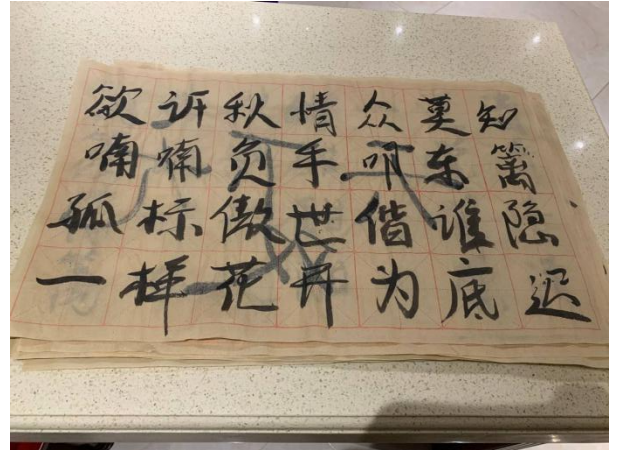 欲讯秋情众莫知
喃喃负手叩东篱
孤标傲世偕谁隐
一样花开为底迟